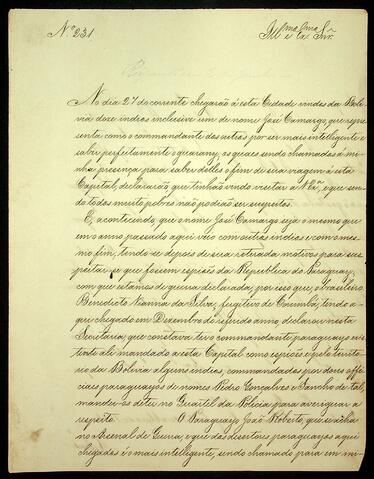 Nº 231
Illmo e Exmo Snr.
No dia 27 do corrente chegarão á esta Cidade vindos da Boli-
via doze indios inclusive um de nome José Camargo, que repre-
senta como o commandante dos outros por ser mais intelligente e
saber perfeitamente o guarany, os quaes sendo chamados á mi-
nha presença para saber delles o fim de sua viagem á esta
Capital, declararão que tinhão vindo visitar a V. Exª, e que sen-
do todos muito pobres não podião ser suspeitos.
E, acontecendo, que o nome José Camargo seja o mesmo que
em o anno passado aqui veio com outros indios e com o mes-
mo fim, tendo-se depois de sua retirada motivos para sus-
peitar-se que fossem espiões da Republica do Paraguay,
com que estamos de guerra declarada, por isso que, o brasileiro
Benedicto Vianna da Silva, fugitivo de Corumbá, tendo a-
qui chegado em Dezembro do referido anno, declarou nesta
Secretaria, que constava ter o commandante paraguayo exis-
tente ali mandado a esta Capital como espiões e pelo territo-
rio da Bolivia alguns indios, commandados por dous offi-
ciaes paraguayos de nomes Pedro Gonçalves e Sancho de tal,
mandei-os deter no Quartel da Policia para averiguar a
respeito. O Paraguayo João Roberto, que se acha
no Arsenal de Guerra, e que dos desertores paraguayos aqui
chegados é o mais intelligente, sendo chamado para em mi-